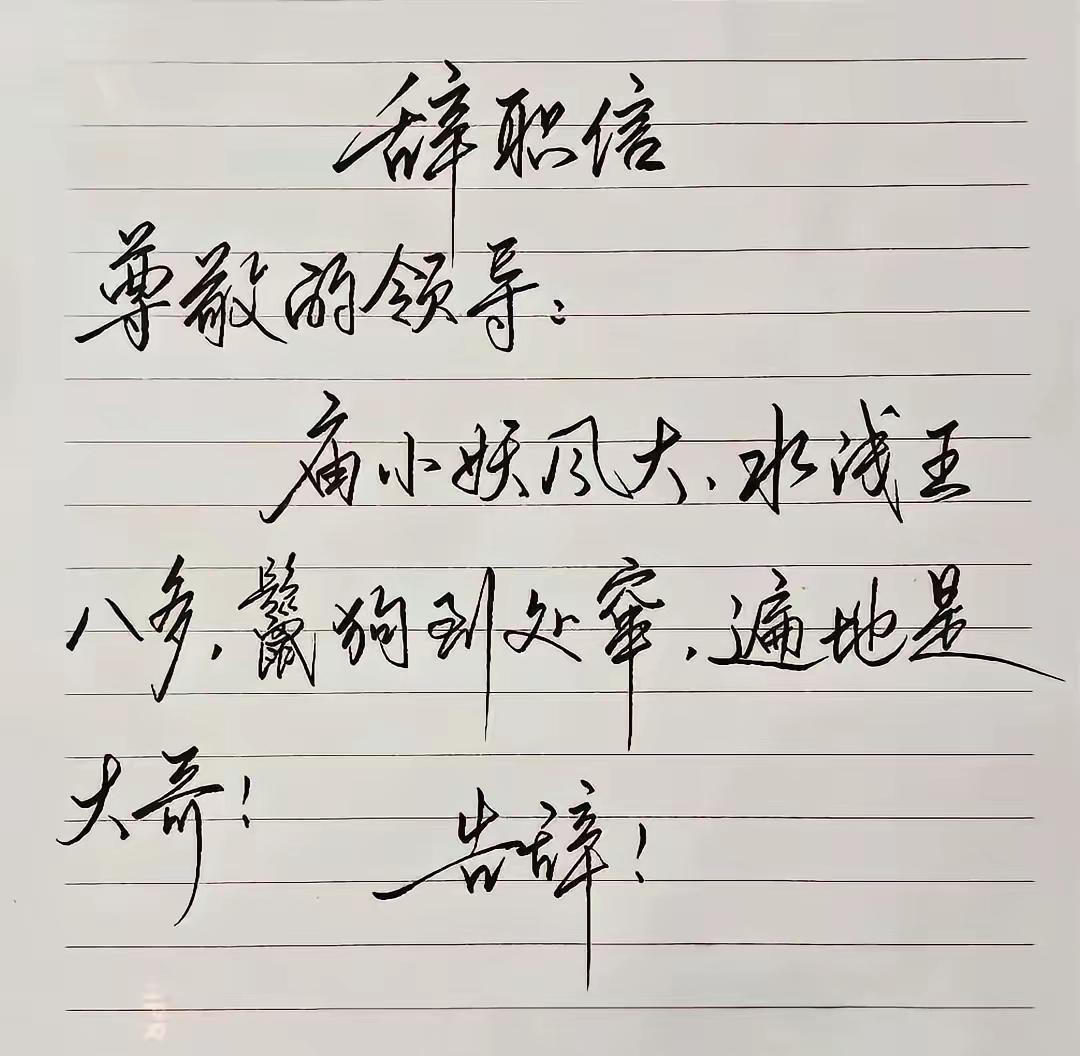 辞职信
尊敬的领导：
庙小妖风大、水浅王
八多，鬣狗到处窜，遍地是
大哥！
告辞！